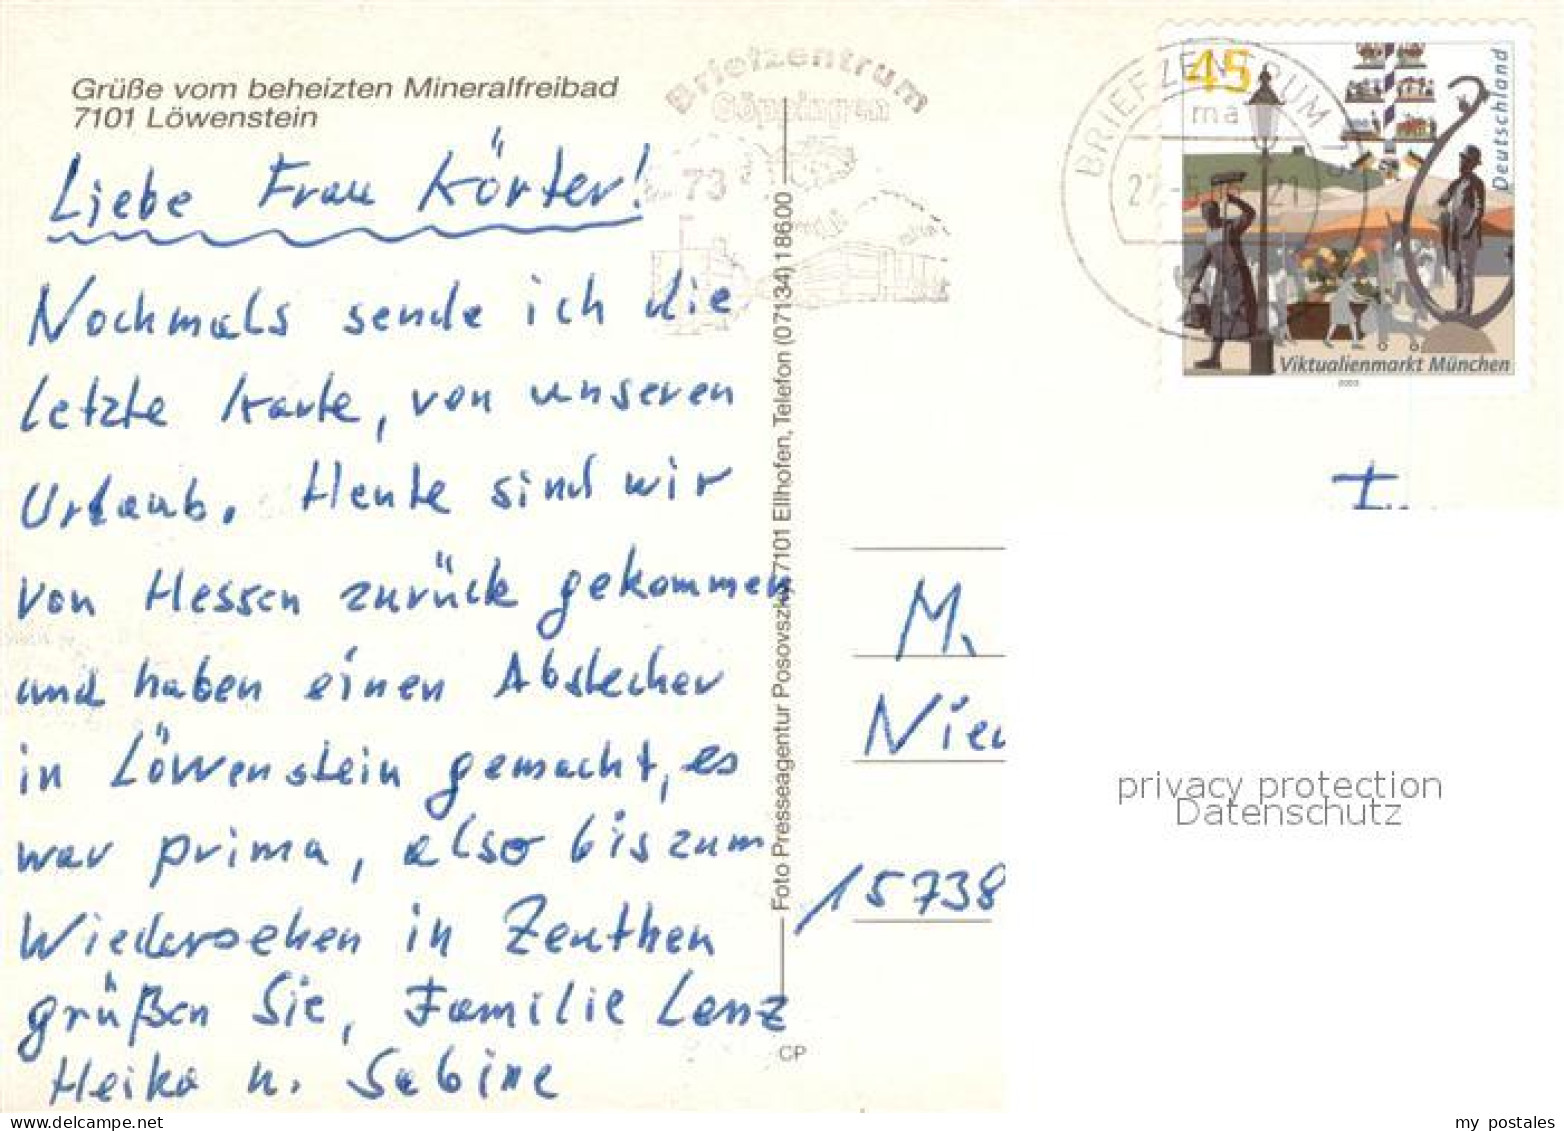 Grüße vom beheizten Mineralfreibad
7101 Löwenstein
Liebe Frau Körter!
Nochmals sende ich die
letzte Karte, von unseren
Urlaub. Heute sind wir
von Hessen zurück gekommen
und haben einen Abstecher
in Löwenstein gemacht, es
war prima, also bis zum
Wiedersehen in Zeuthen
grüßen Sie, Familie Lenz
Heiko u. Sabine
Briefzentrum
Göppingen
73
Foto Presseagentur Posovszky, 7101 Ellhofen, Telefon (07134) 18600
CP
BRIEFZENTRUM
ma
21
45
Deutschland
Viktualienmarkt München
2003
M.
Nie
15738
privacy protection
Datenschutz
my postales